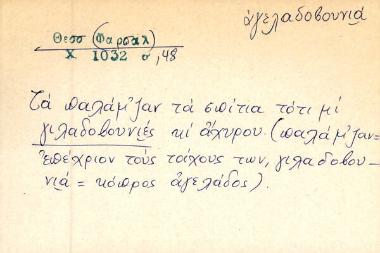 ἀγελαδοβουνιά
Θεσσ (Φαρσαλ)
Χ 1032 σ, 48
Τὰ παλάμ'ζαν τὰ σπίτια τότι μὶ
γιλαδοβουνιές κὶ ἄχυρου. (παλάμ'ζαν=
ἐπέχριον τοὺς τοίχους των, γιλαδοβου-
νιά = κόπρος ἀγελάδος).